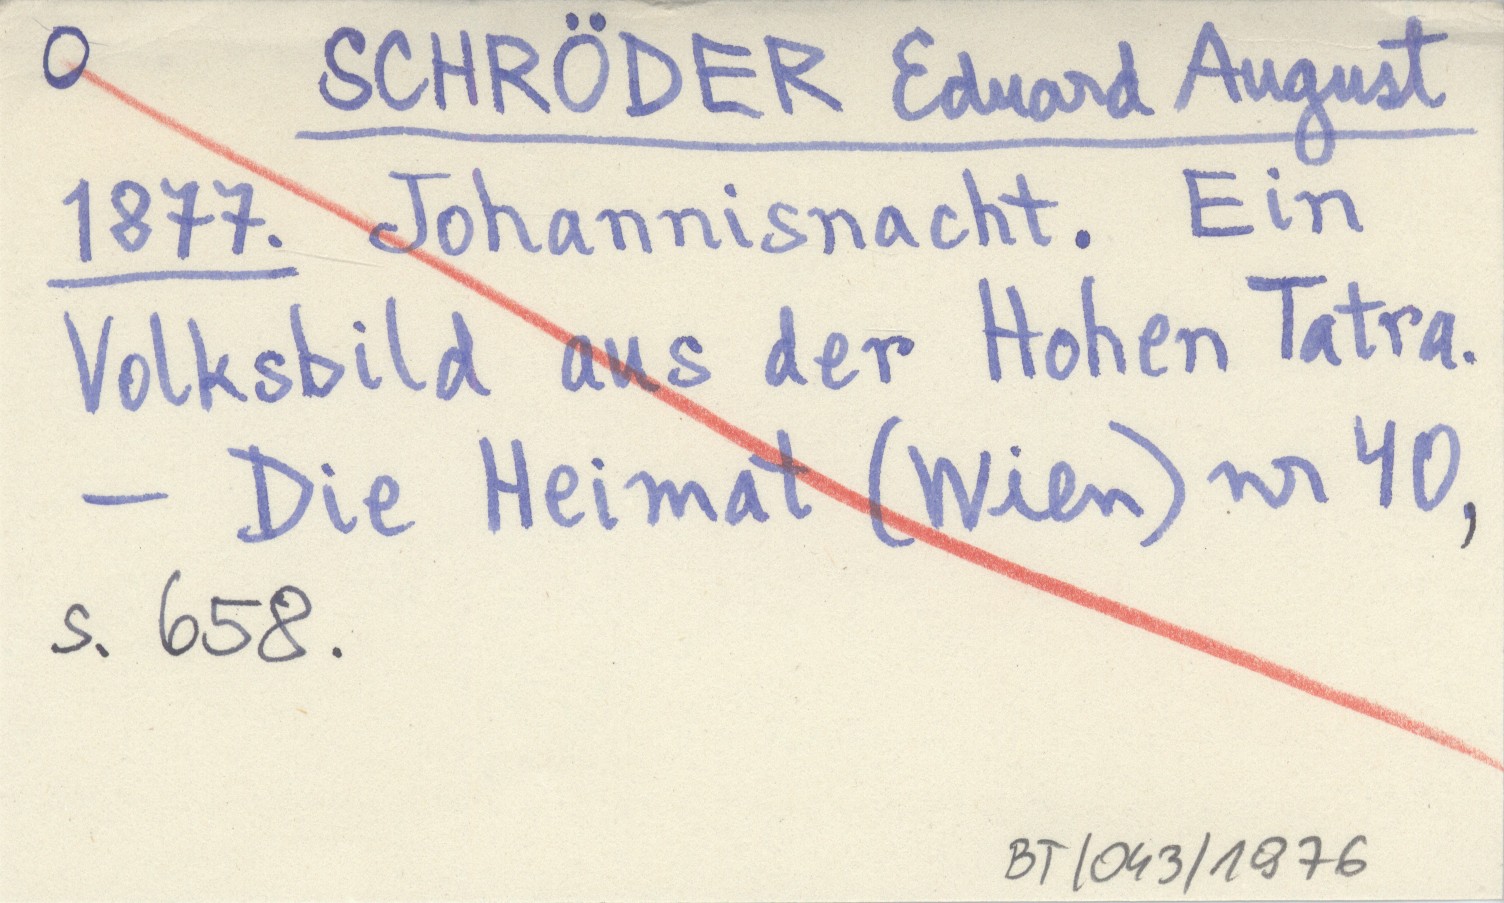 O SCHRÖDER Eduard August
1877. Johannisnacht. Ein
Volksbild aus der Hohen Tatra.
— Die Heimat (Wien) nr 40,
s. 658.
BT/043/1976